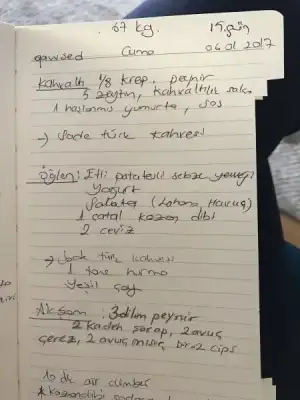 67 kg.
15. gün
Cuma 06.01.2017
Kahvaltı 1/8 krep, peynir
5 zeytin, kahvaltılık
1 haşlanmış yumurta, sos
→ Sade türk kahvesi
Öğlen: Etli patatesli sebze yemeği
Yoğurt
Salata (Lahana, Havuç)
1 çatal kazan dibi
2 ceviz
→ Sade türk kahvesi
1 tane hurma
Yeşil çay
Akşam: 3 dilim peynir
2 kadeh şarap, 2 avuç
çerez, 2 avuç mısır, bir-2 cips
10 dk air climber